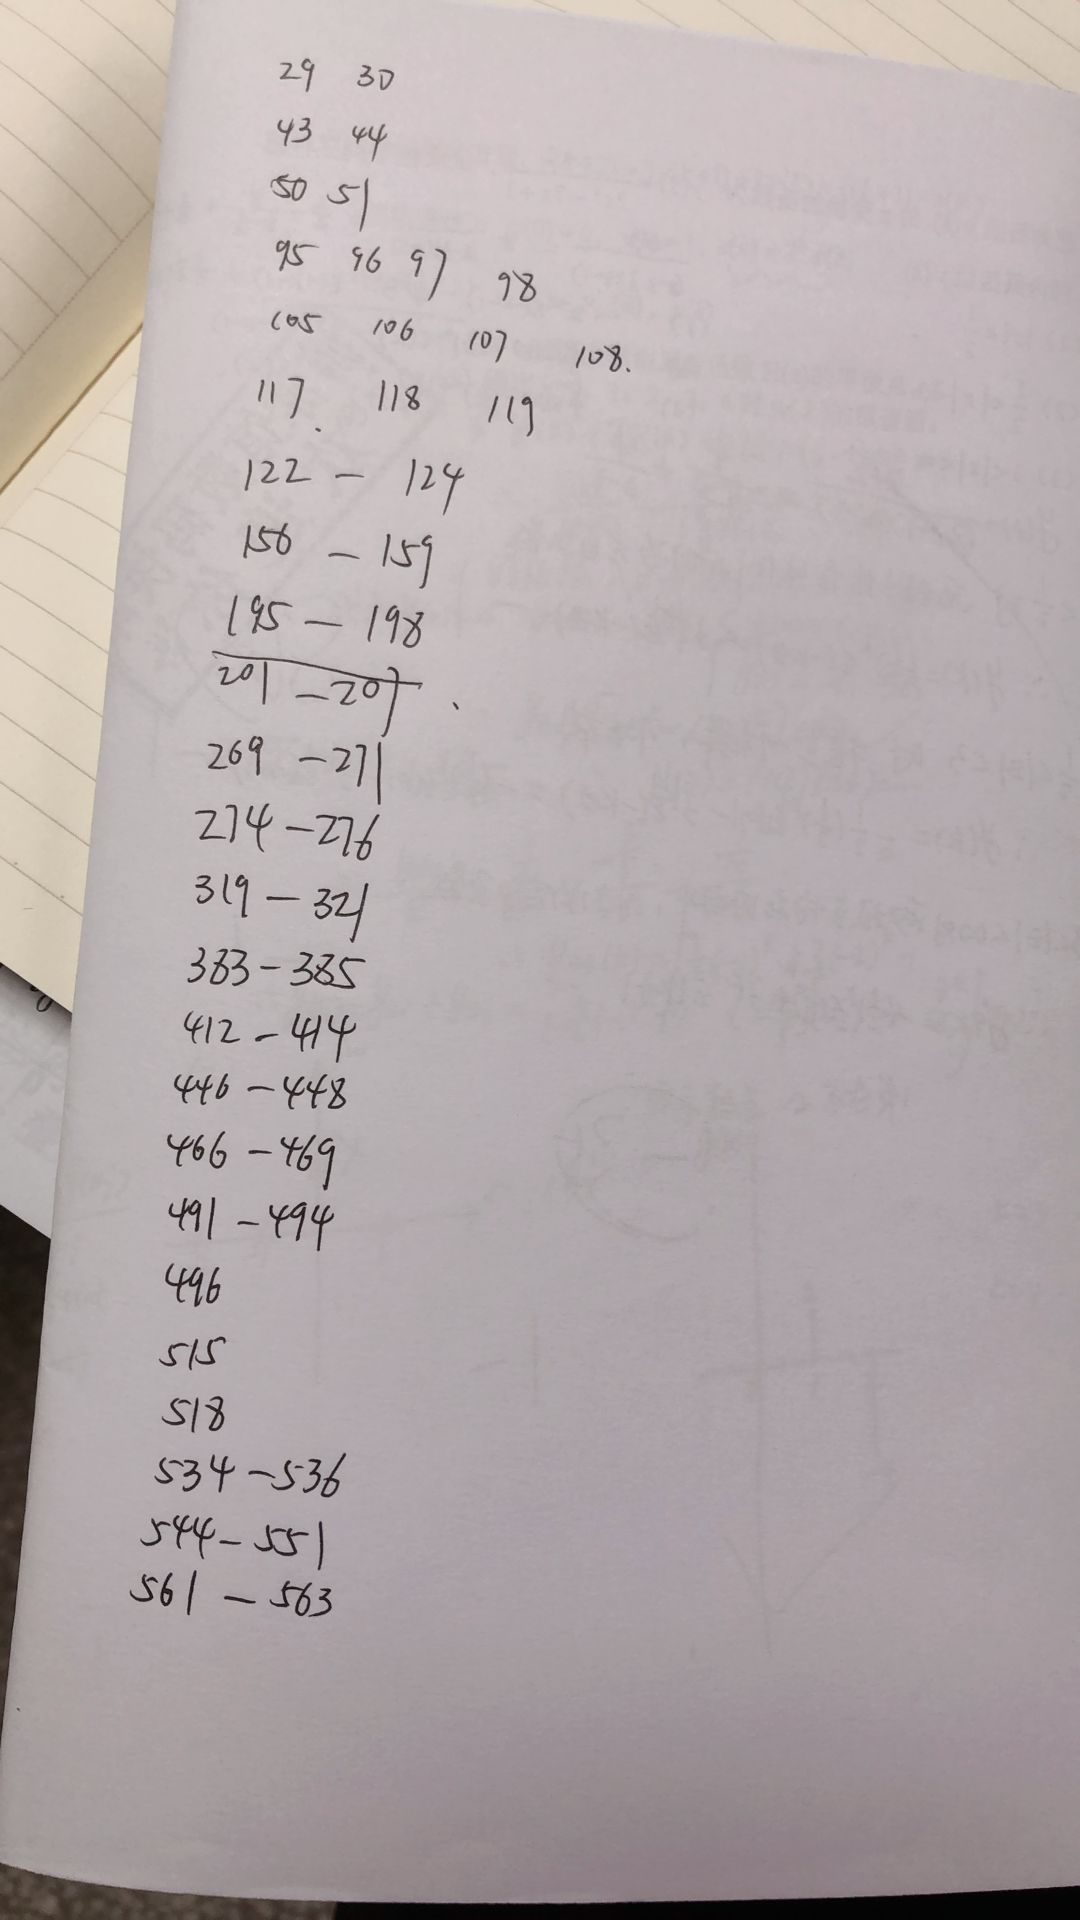 29 30
43 44
50 51
95 96 97 98
105 106 107 108.
117. 118 119
122 - 124
156 - 159
195 - 198
201 - 207.
269 - 271
274 - 276
319 - 321
383 - 385
412 - 414
446 - 448
466 - 469
491 - 494
496
515
518
534 - 536
544 - 551
561 - 563